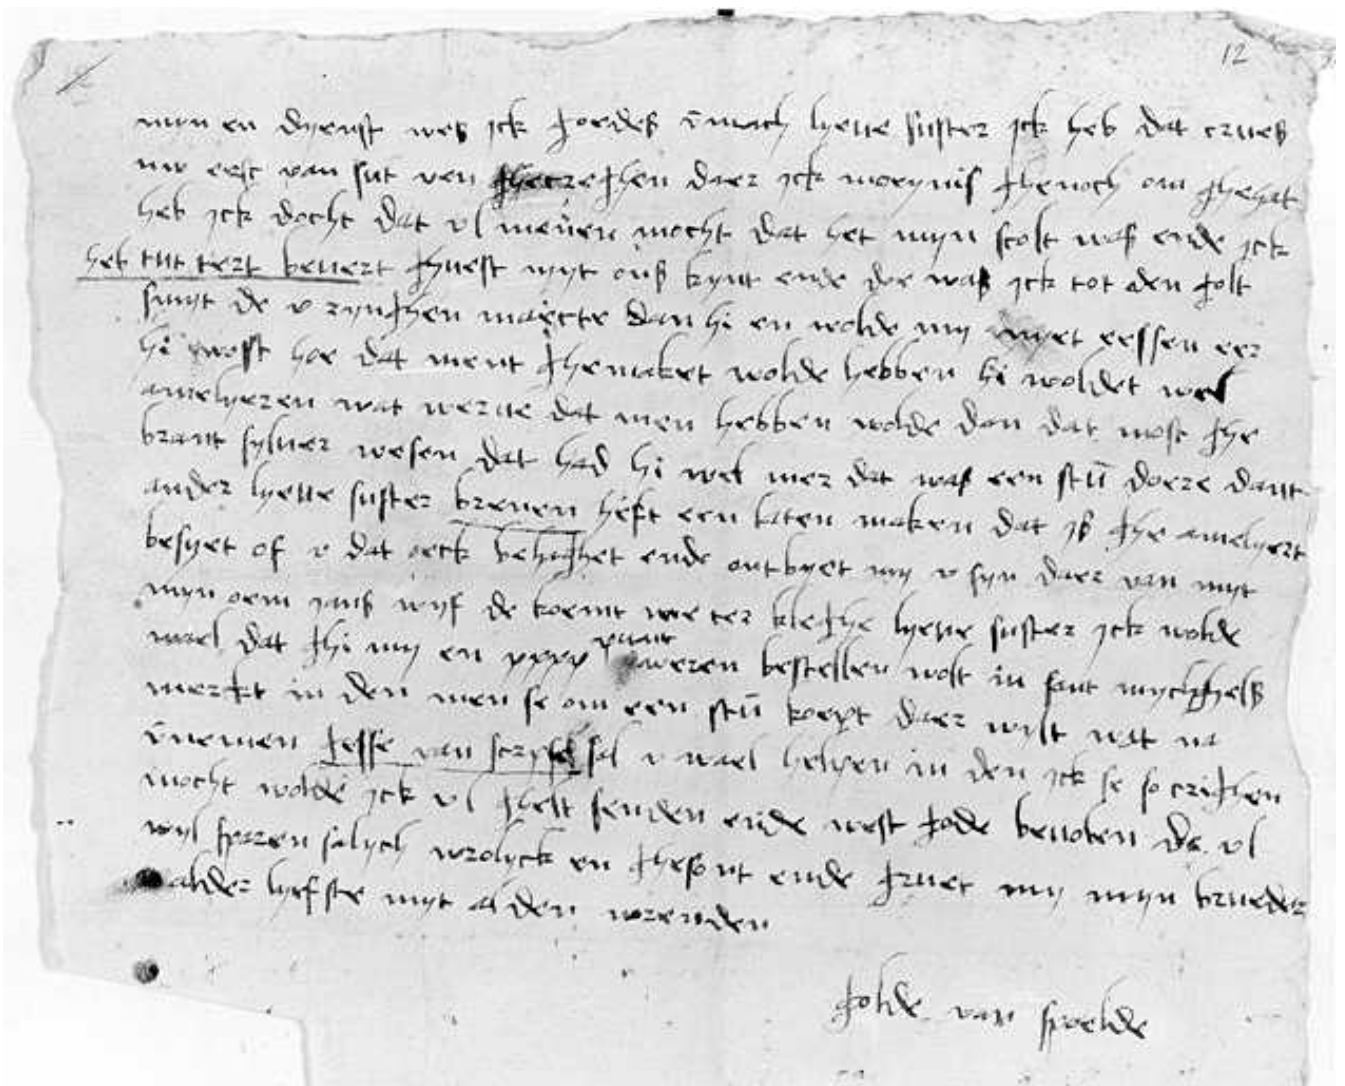 12
mijn en dyenst wes jck goedes v̄mach lyeue suster jck heb dat crues
nw erst van sut ven ghecreghen daer jck moeynis ghenoch om ghehat
heb jck docht dat vl menen mocht dat het mijn scolt was ende jck
heb tut tert beuert ghuest myt ons kynt ende doe was jck tot den golt
smyt de v rynghen maecte dan hi en wolde mij nyet eessen eer
hi wost hoe dat ment ghemaket wolde hebben hi woldet wel
amelyeren wat werue dat men hebben wolde dan dat most ghe
brant syluer wesen dat had hi wel mer dat was een stū doere dant
ander lyeue suster breuen heft een laten maken dat js ghe amelyert
besyet of v dat oeck behaghet ende ontbyet mij v syn daer van myt
mijn oem jans wijf de koemt we ter kleghe lyeue suster jck wolde
wael dat ghi mij en xxxx waeren bestellen wolt in sant mychghels
merkt in den men se om een stū koept daer wylt wat na
v̄nemen gesse van scryfel sal v wael helpen in den jck se so crighen
mocht wolde jck vl ghelt senden ende west gode beuolen de vl
wyl sparen salych wrolyck en ghesont ende gruet mij mijn brueder
alder lyefste myt al den wrenden
golde van spoelde